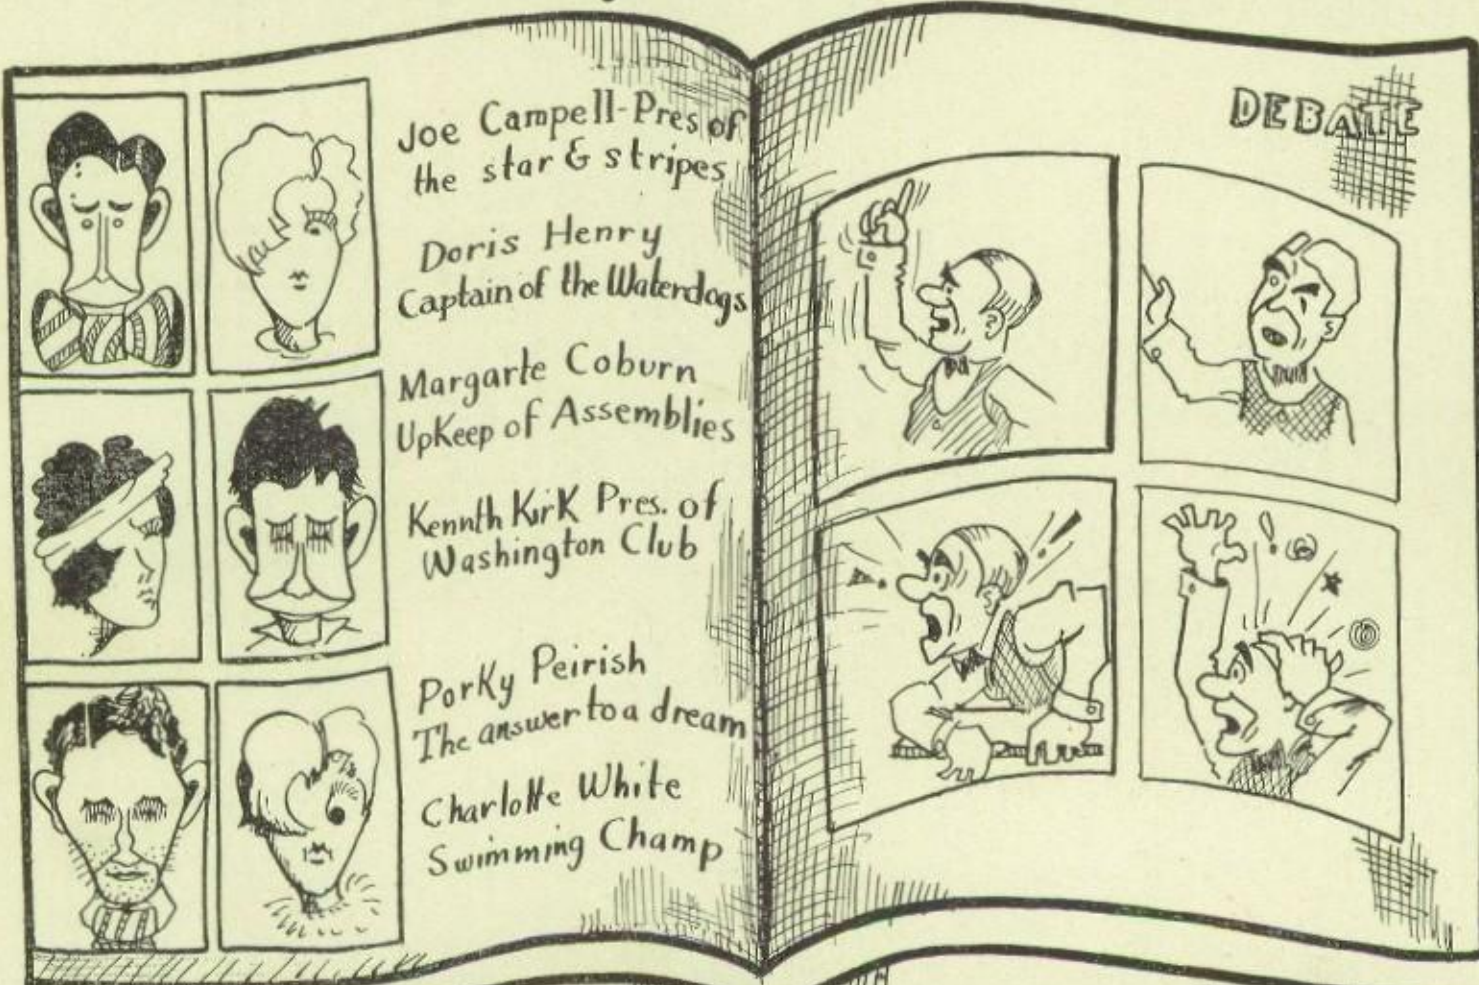 Joe Campell-Pres of
the star & stripes
Doris Henry
Captain of the Waterdogs
Margarte Coburn
UpKeep of Assemblies
Kennth Kirk Pres. of
Washington Club
Porky Peirish
The answer to a dream
Charlotte White
Swimming Champ
DEBATE